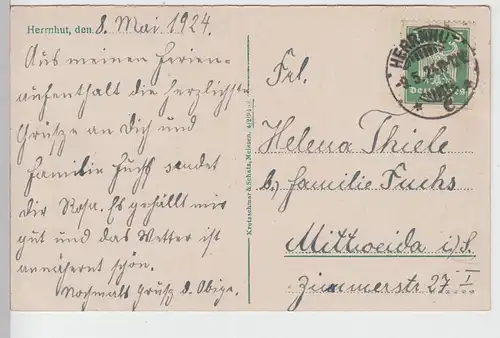 Herrnhut, den 8. Mai 1924.
Aus meinen Ferien-
aufenthalt die herzlichste
Grüsze an Dich und
Familie Fuchs sendet
dir Rosa. Es gefällt mir
gut und das Wetter ist
annähernt schön.
Nochmals Grusz d. Obige.
Kretzschmar & Schatz, Meissen.
HERRNHUT
Frl.
Helena Thiele
b. Familie Fuchs
Mittweida i/S.
Zimmerstr 27 I